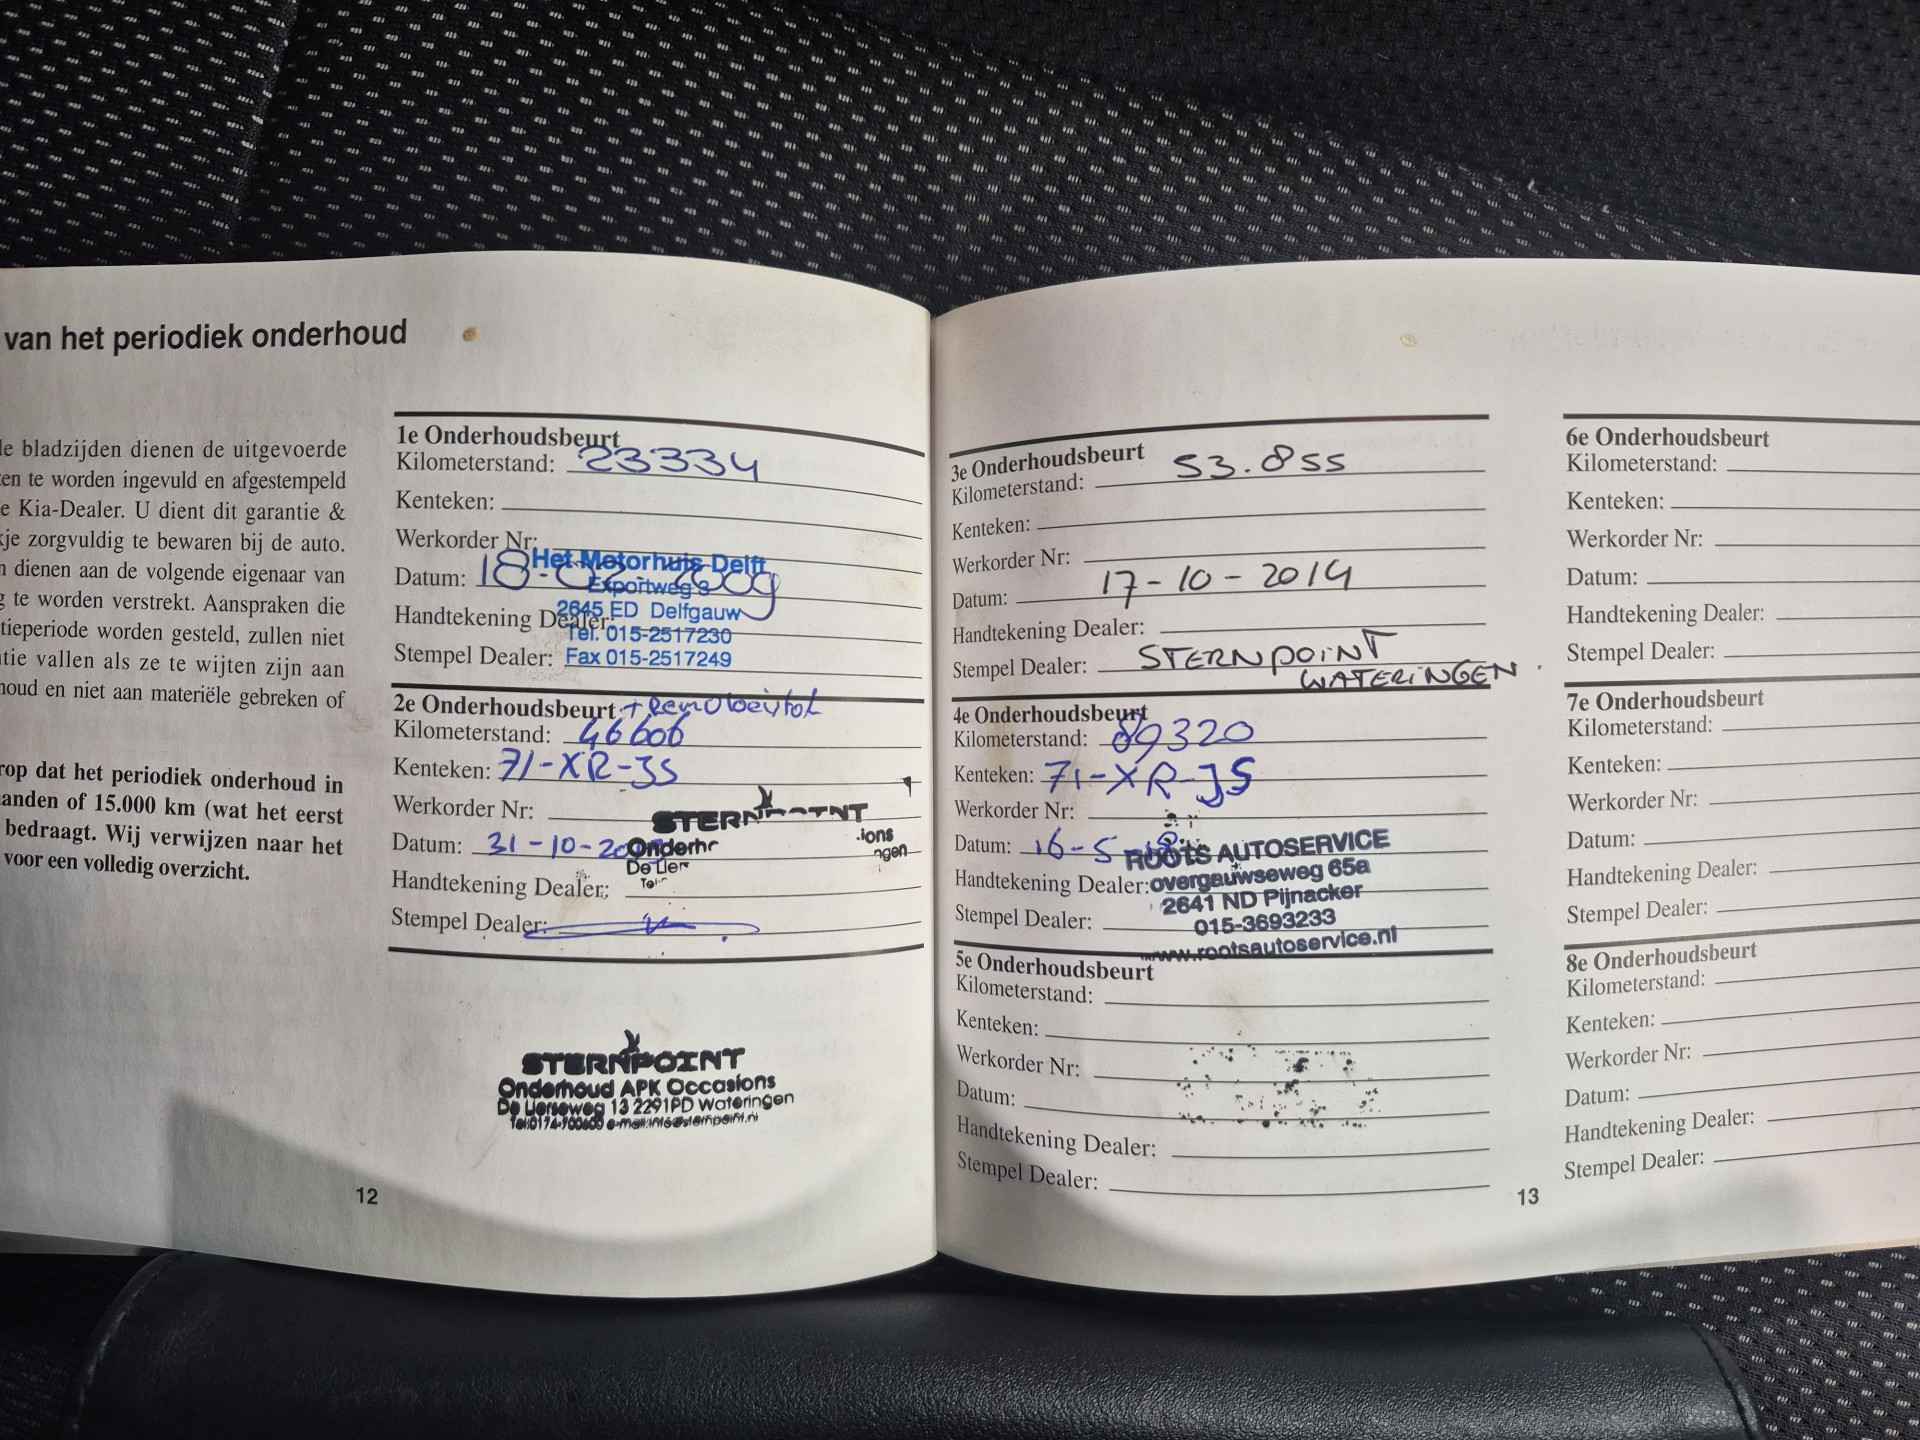 van het periodiek onderhoud
le bladzijden dienen de uitgevoerde
ten te worden ingevuld en afgestempeld
e Kia-Dealer. U dient dit garantie &
kje zorgvuldig te bewaren bij de auto.
n dienen aan de volgende eigenaar van
g te worden verstrekt. Aanspraken die
tieperiode worden gesteld, zullen niet
ntie vallen als ze te wijten zijn aan
houd en niet aan materiële gebreken of
rop dat het periodiek onderhoud in
anden of 15.000 km (wat het eerst
bedraagt. Wij verwijzen naar het
voor een volledig overzicht.
1e Onderhoudsbeurt
Kilometerstand: 23334
Kenteken:
Werkorder Nr:
Het Motorhuis Delft
Datum: 18-02-2009
Exportweg 3
2645 ED Delfgauw
Handtekening Dealer:
Tel. 015-2517230
Stempel Dealer: Fax 015-2517249
2e Onderhoudsbeurt +
Kilometerstand: 46606
Kenteken: 71-XR-JS
Werkorder Nr:
STERNPOINT
Datum: 31-10-
Onderh ions
De Lier ngen
Tel
Handtekening Dealer:
Stempel Dealer:
STERNPOINT
Onderhoud APK Occasions
De Lierseweg 13 2291PD Wateringen
Tel:0174-700600 e-mail:info@sternpoint.nl
12
3e Onderhoudsbeurt
Kilometerstand: 53.855
Kenteken:
Werkorder Nr:
Datum: 17-10-2014
Handtekening Dealer:
Stempel Dealer: STERNPOINT
WATERINGEN
4e Onderhoudsbeurt
Kilometerstand: 89320
Kenteken: 71-XR-JS
Werkorder Nr:
Datum: 16-5-18
ROOTS AUTOSERVICE
Handtekening Dealer: overgauwseweg 65a
2641 ND Pijnacker
Stempel Dealer: 015-3693233
www.rootsautoservice.nl
5e Onderhoudsbeurt
Kilometerstand:
Kenteken:
Werkorder Nr:
Datum:
Handtekening Dealer:
Stempel Dealer:
6e Onderhoudsbeurt
Kilometerstand:
Kenteken:
Werkorder Nr:
Datum:
Handtekening Dealer:
Stempel Dealer:
7e Onderhoudsbeurt
Kilometerstand:
Kenteken:
Werkorder Nr:
Datum:
Handtekening Dealer:
Stempel Dealer:
8e Onderhoudsbeurt
Kilometerstand:
Kenteken:
Werkorder Nr:
Datum:
Handtekening Dealer:
Stempel Dealer:
13